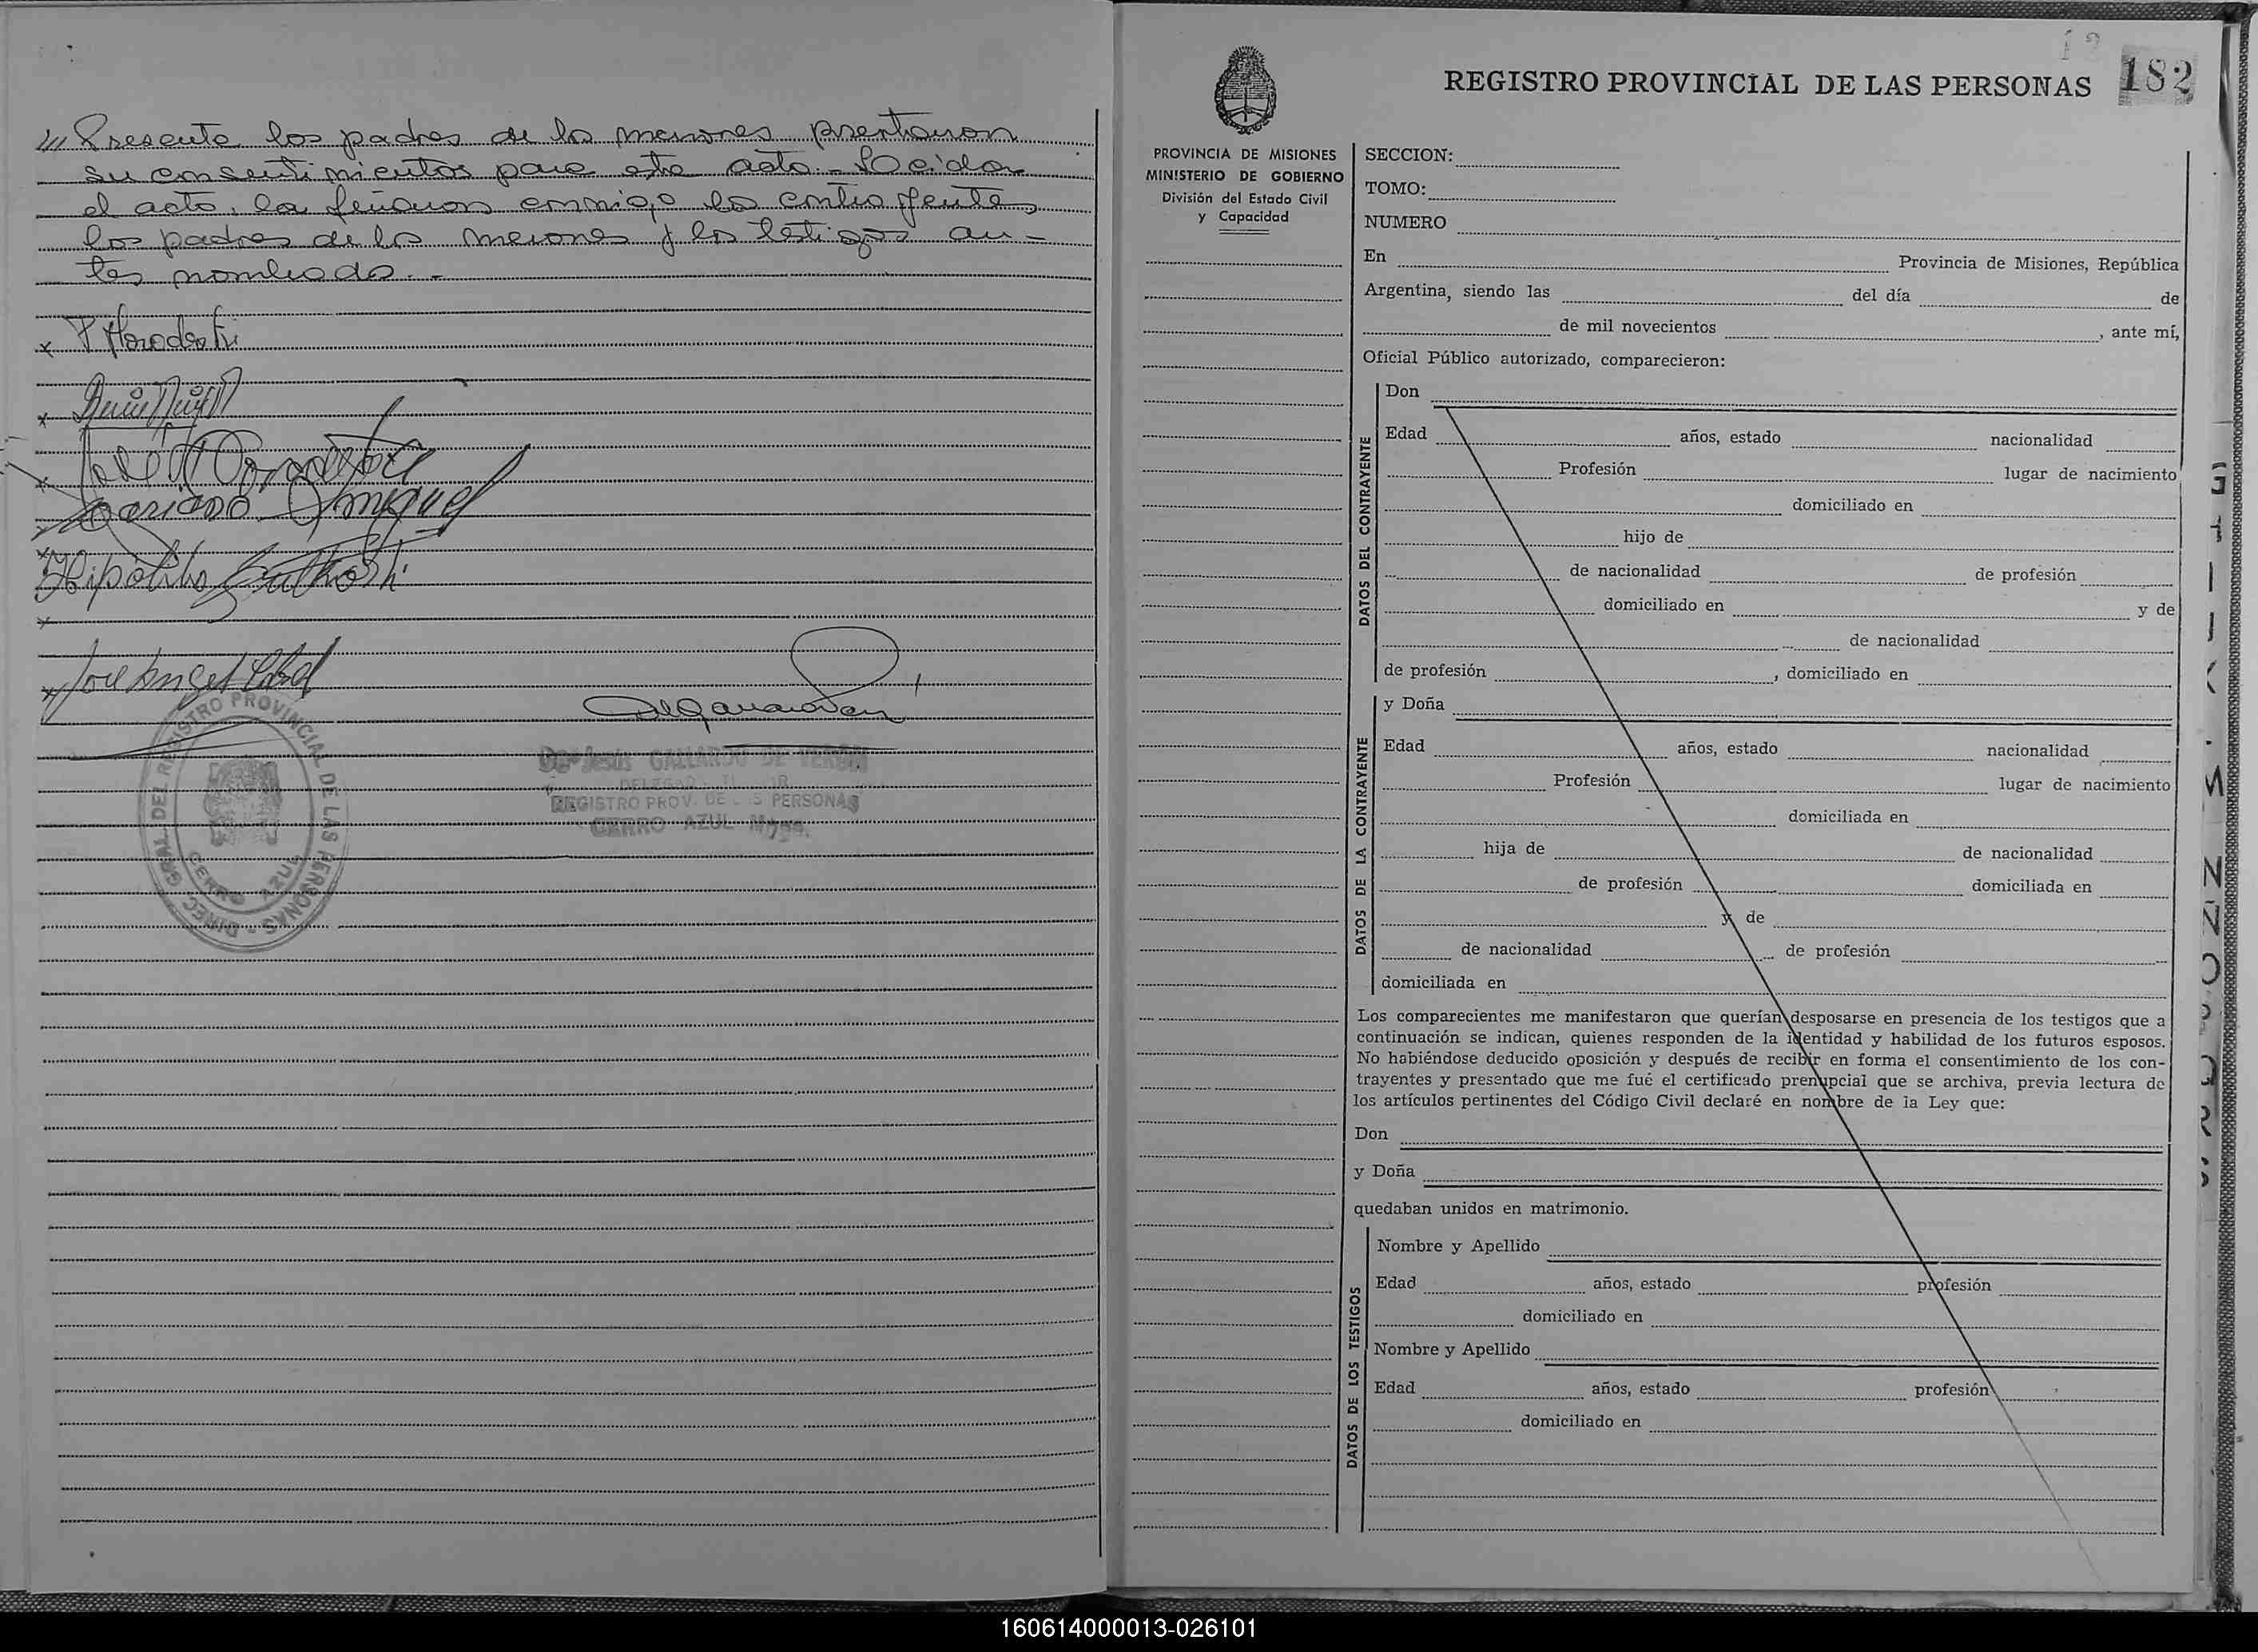 /// Presente los padres de los menores prestaron
su consentimientos para este acto.- Leída
el acto, la firmaron conmigo los contrayentes
los padres de los menores y los testigos an-
tes nombrado.-
x
x
x José
x Mariano
x Hipólito
x
x José Angel
DIREC. GRAL. DEL REGISTRO PROVINCIAL DE LAS PERSONAS -
CERRO AZUL
Jesús GALLARDO DE
REGISTRO PROV. DE PERSONAS
CERRO AZUL
182
REGISTRO PROVINCIAL DE LAS PERSONAS
PROVINCIA DE MISIONES
MINISTERIO DE GOBIERNO
División del Estado Civil
y Capacidad
SECCION:
TOMO:
NUMERO
En Provincia de Misiones, República
Argentina, siendo las del día de
de mil novecientos , ante mí,
Oficial Público autorizado, comparecieron:
DATOS DEL CONTRAYENTE
Don
Edad años, estado nacionalidad
Profesión lugar de nacimiento
domiciliado en
hijo de
de nacionalidad de profesión
domiciliado en y de
de nacionalidad
de profesión , domiciliado en
DATOS DE LA CONTRAYENTE
y Doña
Edad años, estado nacionalidad
Profesión lugar de nacimiento
domiciliada en
hija de de nacionalidad
de profesión domiciliada en
y de
de nacionalidad de profesión
domiciliada en
Los comparecientes me manifestaron que querían desposarse en presencia de los testigos que a
continuación se indican, quienes responden de la identidad y habilidad de los futuros esposos.
No habiéndose deducido oposición y después de recibir en forma el consentimiento de los con-
trayentes y presentado que me fué el certificado prenupcial que se archiva, previa lectura de
los artículos pertinentes del Código Civil declaré en nombre de la Ley que:
Don
y Doña
quedaban unidos en matrimonio.
DATOS DE LOS TESTIGOS
Nombre y Apellido
Edad años, estado profesión
domiciliado en
Nombre y Apellido
Edad años, estado profesión
domiciliado en
160614000013-026101